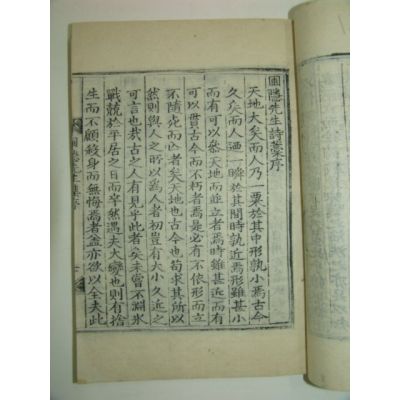 圃隱先生詩藁序
天地大矣而人乃一粟於其中形孰小焉古今
久矣而人迺一瞬於其間時孰近焉形雖甚小
而有可以參天地而竝立者焉時雖甚近而有
可以貫古今而不朽者焉是必有不依形而立
不隨死而亡者矣天地也古今也苟求其所以
然則與人之所以爲人者初豈有大小久近之
可言也哉古之人有見乎此者矣未嘗不淵氷
戰兢於平居之日而卒然遇夫大變也則有捨
生而不顧殺身而無悔焉者蓋亦欲以全夫此